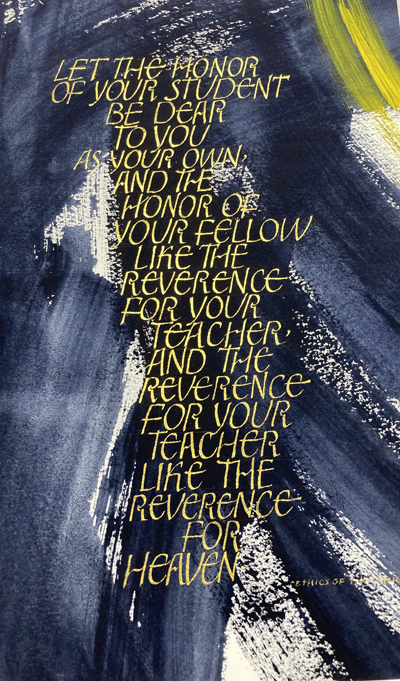 LET THE HONOR
OF YOUR STUDENT
BE DEAR
TO YOU
AS YOUR OWN,
AND THE
HONOR OF
YOUR FELLOW
LIKE THE
REVERENCE
FOR YOUR
TEACHER,
AND THE
REVERENCE
FOR YOUR
TEACHER
LIKE THE
REVERENCE
FOR
HEAVEN
ETHICS OF